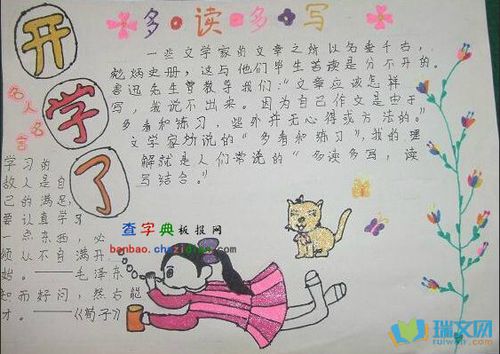 开学了
多·读·多·写
一些文学家的文章之所以名垂千古,
彪炳史册,这与他们毕生苦读是分不开的。
鲁迅先生曾教导我们:“文章应该怎样
写,我说不出来。因为自己作文是由于
多看和练习,此外并无心得或方法的。”
文学家所说的“多看和练习”,我的理
解就是人们常说的“多读多写,读
写结合。”
名人名言
学习的
敌人是自
己的满足,
要认真学习
一点东西,必
须从不自满开
始。——毛泽东
知而好问,然后能
才。——《荀子》
查字典板报网
banbao.chazidian.com
瑞文网
ruiwen.com